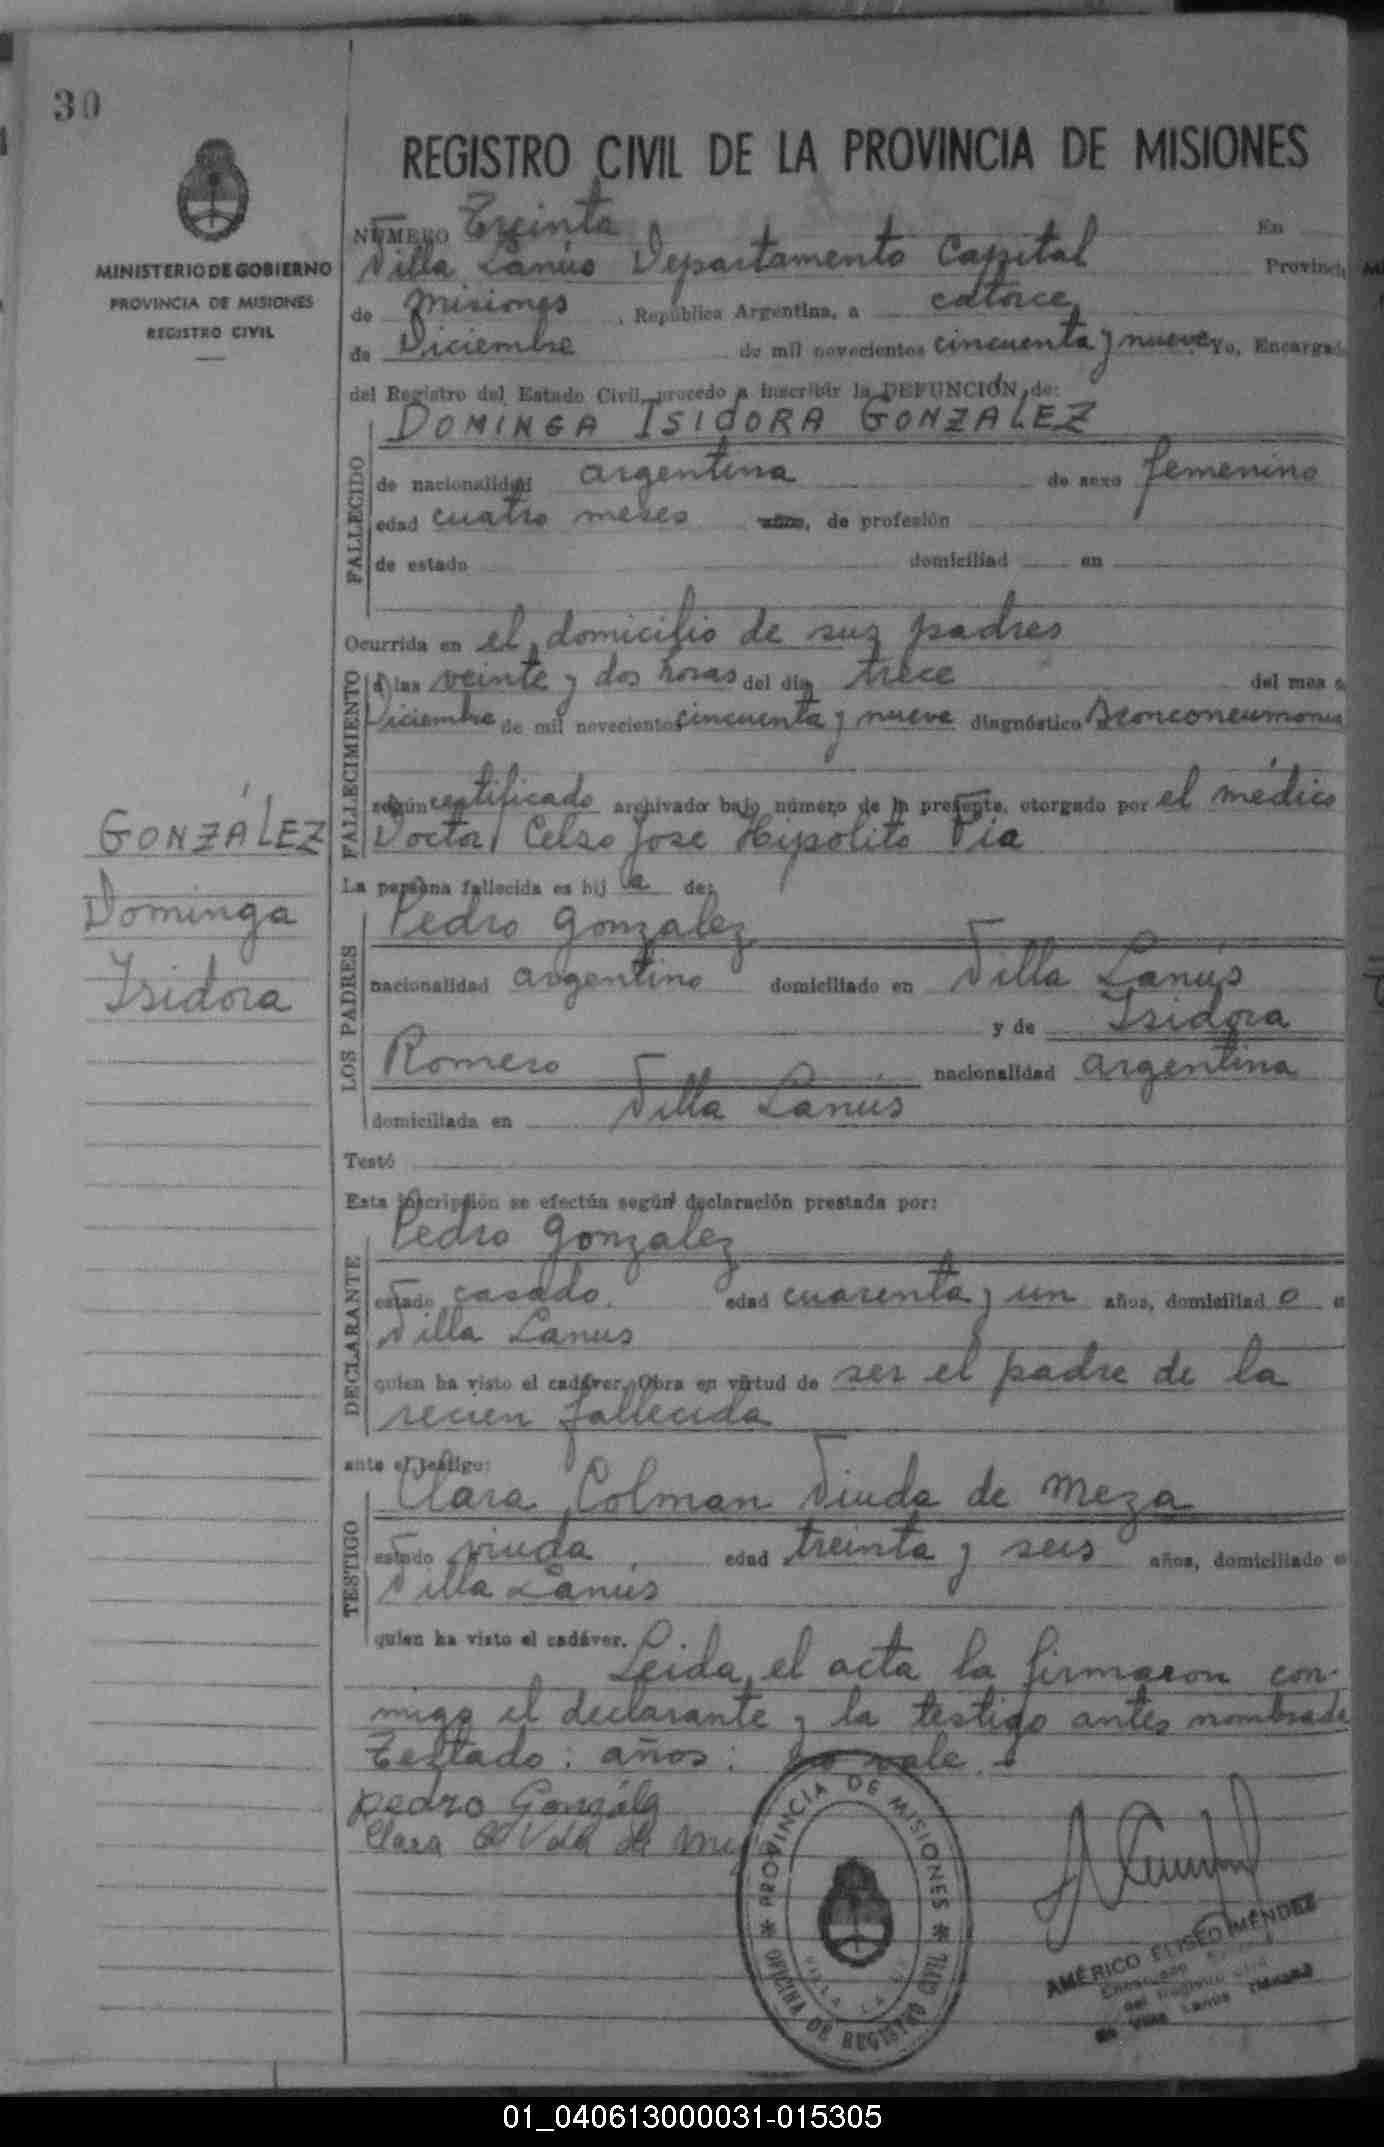 30
REGISTRO CIVIL DE LA PROVINCIA DE MISIONES
MINISTERIO DE GOBIERNO
PROVINCIA DE MISIONES
REGISTRO CIVIL
NÚMERO Treinta En
Villa Lanús Departamento Capital Provinci
de Misiones, República Argentina, a catorce
de Diciembre de mil novecientos cincuenta y nueve Yo, Encargad
del Registro del Estado Civil, procedo a inscribir la DEFUNCIÓN de:
DOMINGA ISIDORA GONZALEZ
FALLECIDO
de nacionalidad argentina de sexo femenino
edad cuatro meses años, de profesión
de estado domiciliad en
Ocurrida en el domicilio de sus padres
FALLECIMIENTO
a las veinte y dos horas del día trece del mes
Diciembre de mil novecientos cincuenta y nueve diagnóstico Bronconeumonia
según certificado archivado bajo número de la presente, otorgado por el médico
Doctor Celso Jose Hipólito Pia
GONZÁLEZ
Dominga
Isidora
La persona fallecida es hij a de:
LOS PADRES
Pedro Gonzalez
nacionalidad argentino domiciliado en Villa Lanús
y de Isidora
Romero nacionalidad argentina
domiciliada en Villa Lanús
Testó
Esta inscripción se efectúa según declaración prestada por:
DECLARANTE
Pedro Gonzalez
estado casado. edad cuarenta y un años, domiciliad o e
Villa Lanus
quien ha visto el cadáver. Obra en virtud de ser el padre de la
recien fallecida
ante el testigo:
TESTIGO
Clara Colman Viuda de Meza
estado viuda, edad treinta y seis años, domiciliado e
Villa Lanús
quien ha visto el cadáver. Leida el acta la firmaron con-
migo el declarante y la testigo antes nombrada
Testado: años: no vale.
pedro Gonzálz
Clara C Vda de
PROVINCIA DE MISIONES
OFICINA DE REGISTRO CIVIL
VILLA LA
AMÉRICO ELISEO MÉNDEZ
Encargado
del Registro Civil
de Villa Lanús
01_040613000031-015305